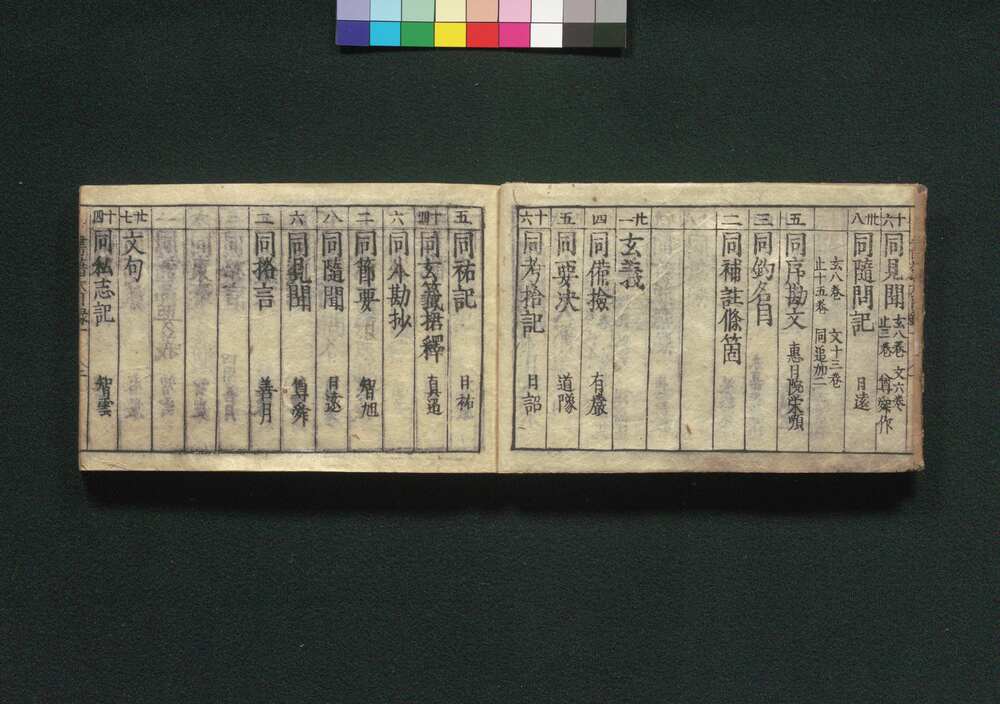 十六 同見聞 玄八巻 文六巻
止三巻 尊舜作
卅八 同隨問記 日遠
玄八巻 文十三巻
止十五巻 同追加二
五 同序勘文 惠月院栄
三 同釣名目
二 同補註條箇
廿一 玄義
四 同備撿 有嚴
五 同要决 道
十六 同考拾記 日詔
五 同祐記 日祐
十四 同玄籤摭釋 真迢
六 同外勘抄
二 同節要 智旭
八 同隨聞 日遠
六 同見聞 尊舜
二 同格言 善月
廿七 文句
十四 同私志記 智雲